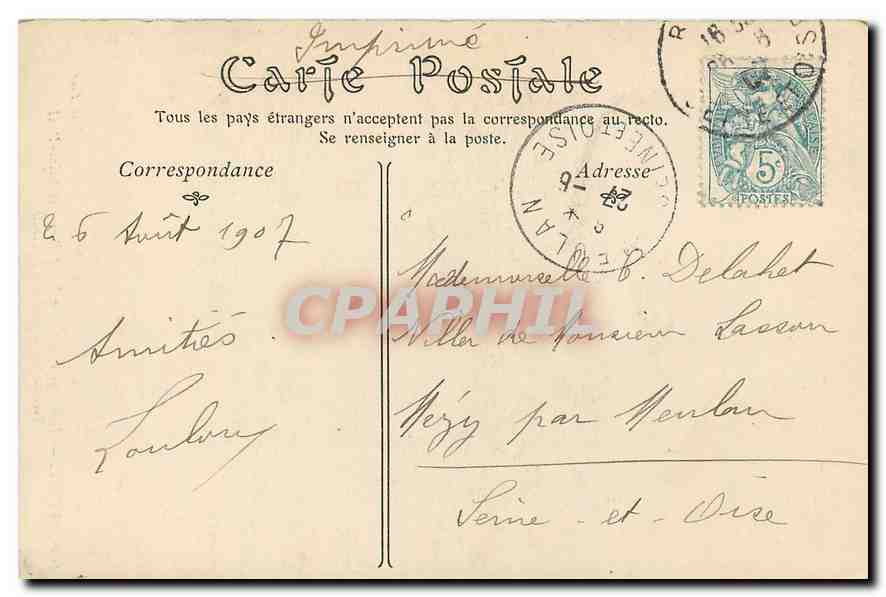 Imprimé
Carte Postale
Tous les pays étrangers n'acceptent pas la correspondance au recto.
Se renseigner à la poste.
Correspondance
Adresse
5c
POSTES
MEULAN
SEINE ET OISE
Le 6 Août 1907
Amitiés
Loulou
Mademoiselle C. Delahet
Villa de Monsieur Lasson
Mézy par Meulan
Seine-et-Oise
CPAPHIL